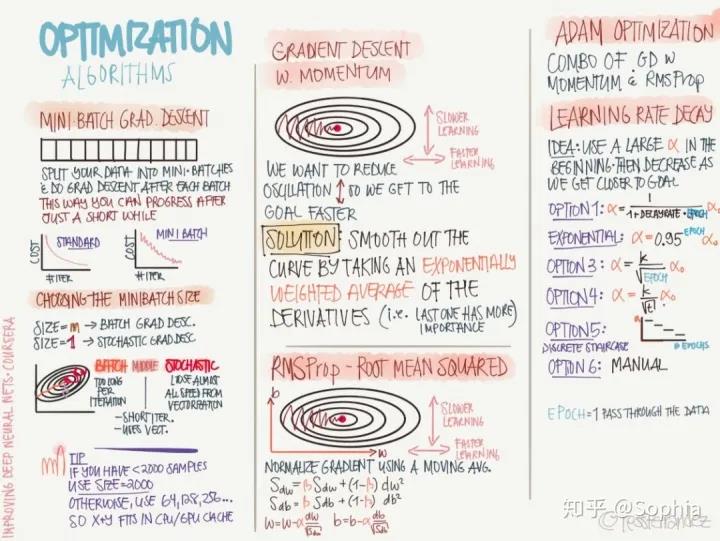 OPTIMIZATION
ALGORITHMS
MINI BATCH GRAD. DESCENT
SPLIT YOUR DATA INTO MINI-BATCHES
& DO GRAD DESCENT AFTER EACH BATCH
THIS WAY YOU CAN PROGRESS AFTER
JUST A SHORT WHILE
COST
STANDARD
# ITER
COST
MINI BATCH
# ITER
CHOOSING THE MINIBATCH SIZE
SIZE=m → BATCH GRAD DESC.
SIZE=1 → STOCHASTIC GRAD DESC.
BATCH MIDDLE STOCHASTIC
TOO LONG
PER
ITERATION
LOOSE ALMOST
ALL SPEED FROM
VECTORIZATION
-SHORT ITER.
-USES VECT.
TIP
IF YOU HAVE <2000 SAMPLES
USE SIZE=2000
OTHERWISE, USE 64,128,256...
SO X+Y FITS IN CPU/GPU CACHE
IMPROVING DEEP NEURAL NETS · COURSERA
GRADIENT DESCENT
W. MOMENTUM
SLOWER
LEARNING
FASTER
LEARNING
WE WANT TO REDUCE
OSCILLATION ↕ SO WE GET TO THE
GOAL FASTER
SOLUTION: SMOOTH OUT THE
CURVE BY TAKING AN EXPONENTIALLY
WEIGHTED AVERAGE OF THE
DERIVATIVES (i.e. LAST ONE HAS MORE)
IMPORTANCE
RMSProp - ROOT MEAN SQUARED
b
w
SLOWER
LEARNING
FASTER
LEARNING
NORMALIZE GRADIENT USING A MOVING AVG.
Sdw = β Sdw + (1-β) dw²
Sdb = β Sdb + (1-β) db²
w=w-α dw/√Sdw b=b-α db/√Sdb
ADAM OPTIMIZATION
COMBO OF GD W
MOMENTUM & RMSProp
LEARNING RATE DECAY
IDEA: USE A LARGE α IN THE
BEGINNING THEN DECREASE AS
WE GET CLOSER TO GOAL
OPTION 1: α = 1/(1+DECAYRATE·EPOCH) α₀
EXPONENTIAL: α = 0.95^EPOCH α₀
OPTION 3: α = k/√EPOCH α₀
OPTION 4: α = k/√t α₀
OPTION 5:
DISCRETE STAIRCASE
α
# EPOCHS
OPTION 6: MANUAL
EPOCH = 1 PASS THROUGH THE DATA
知乎 @Sophia